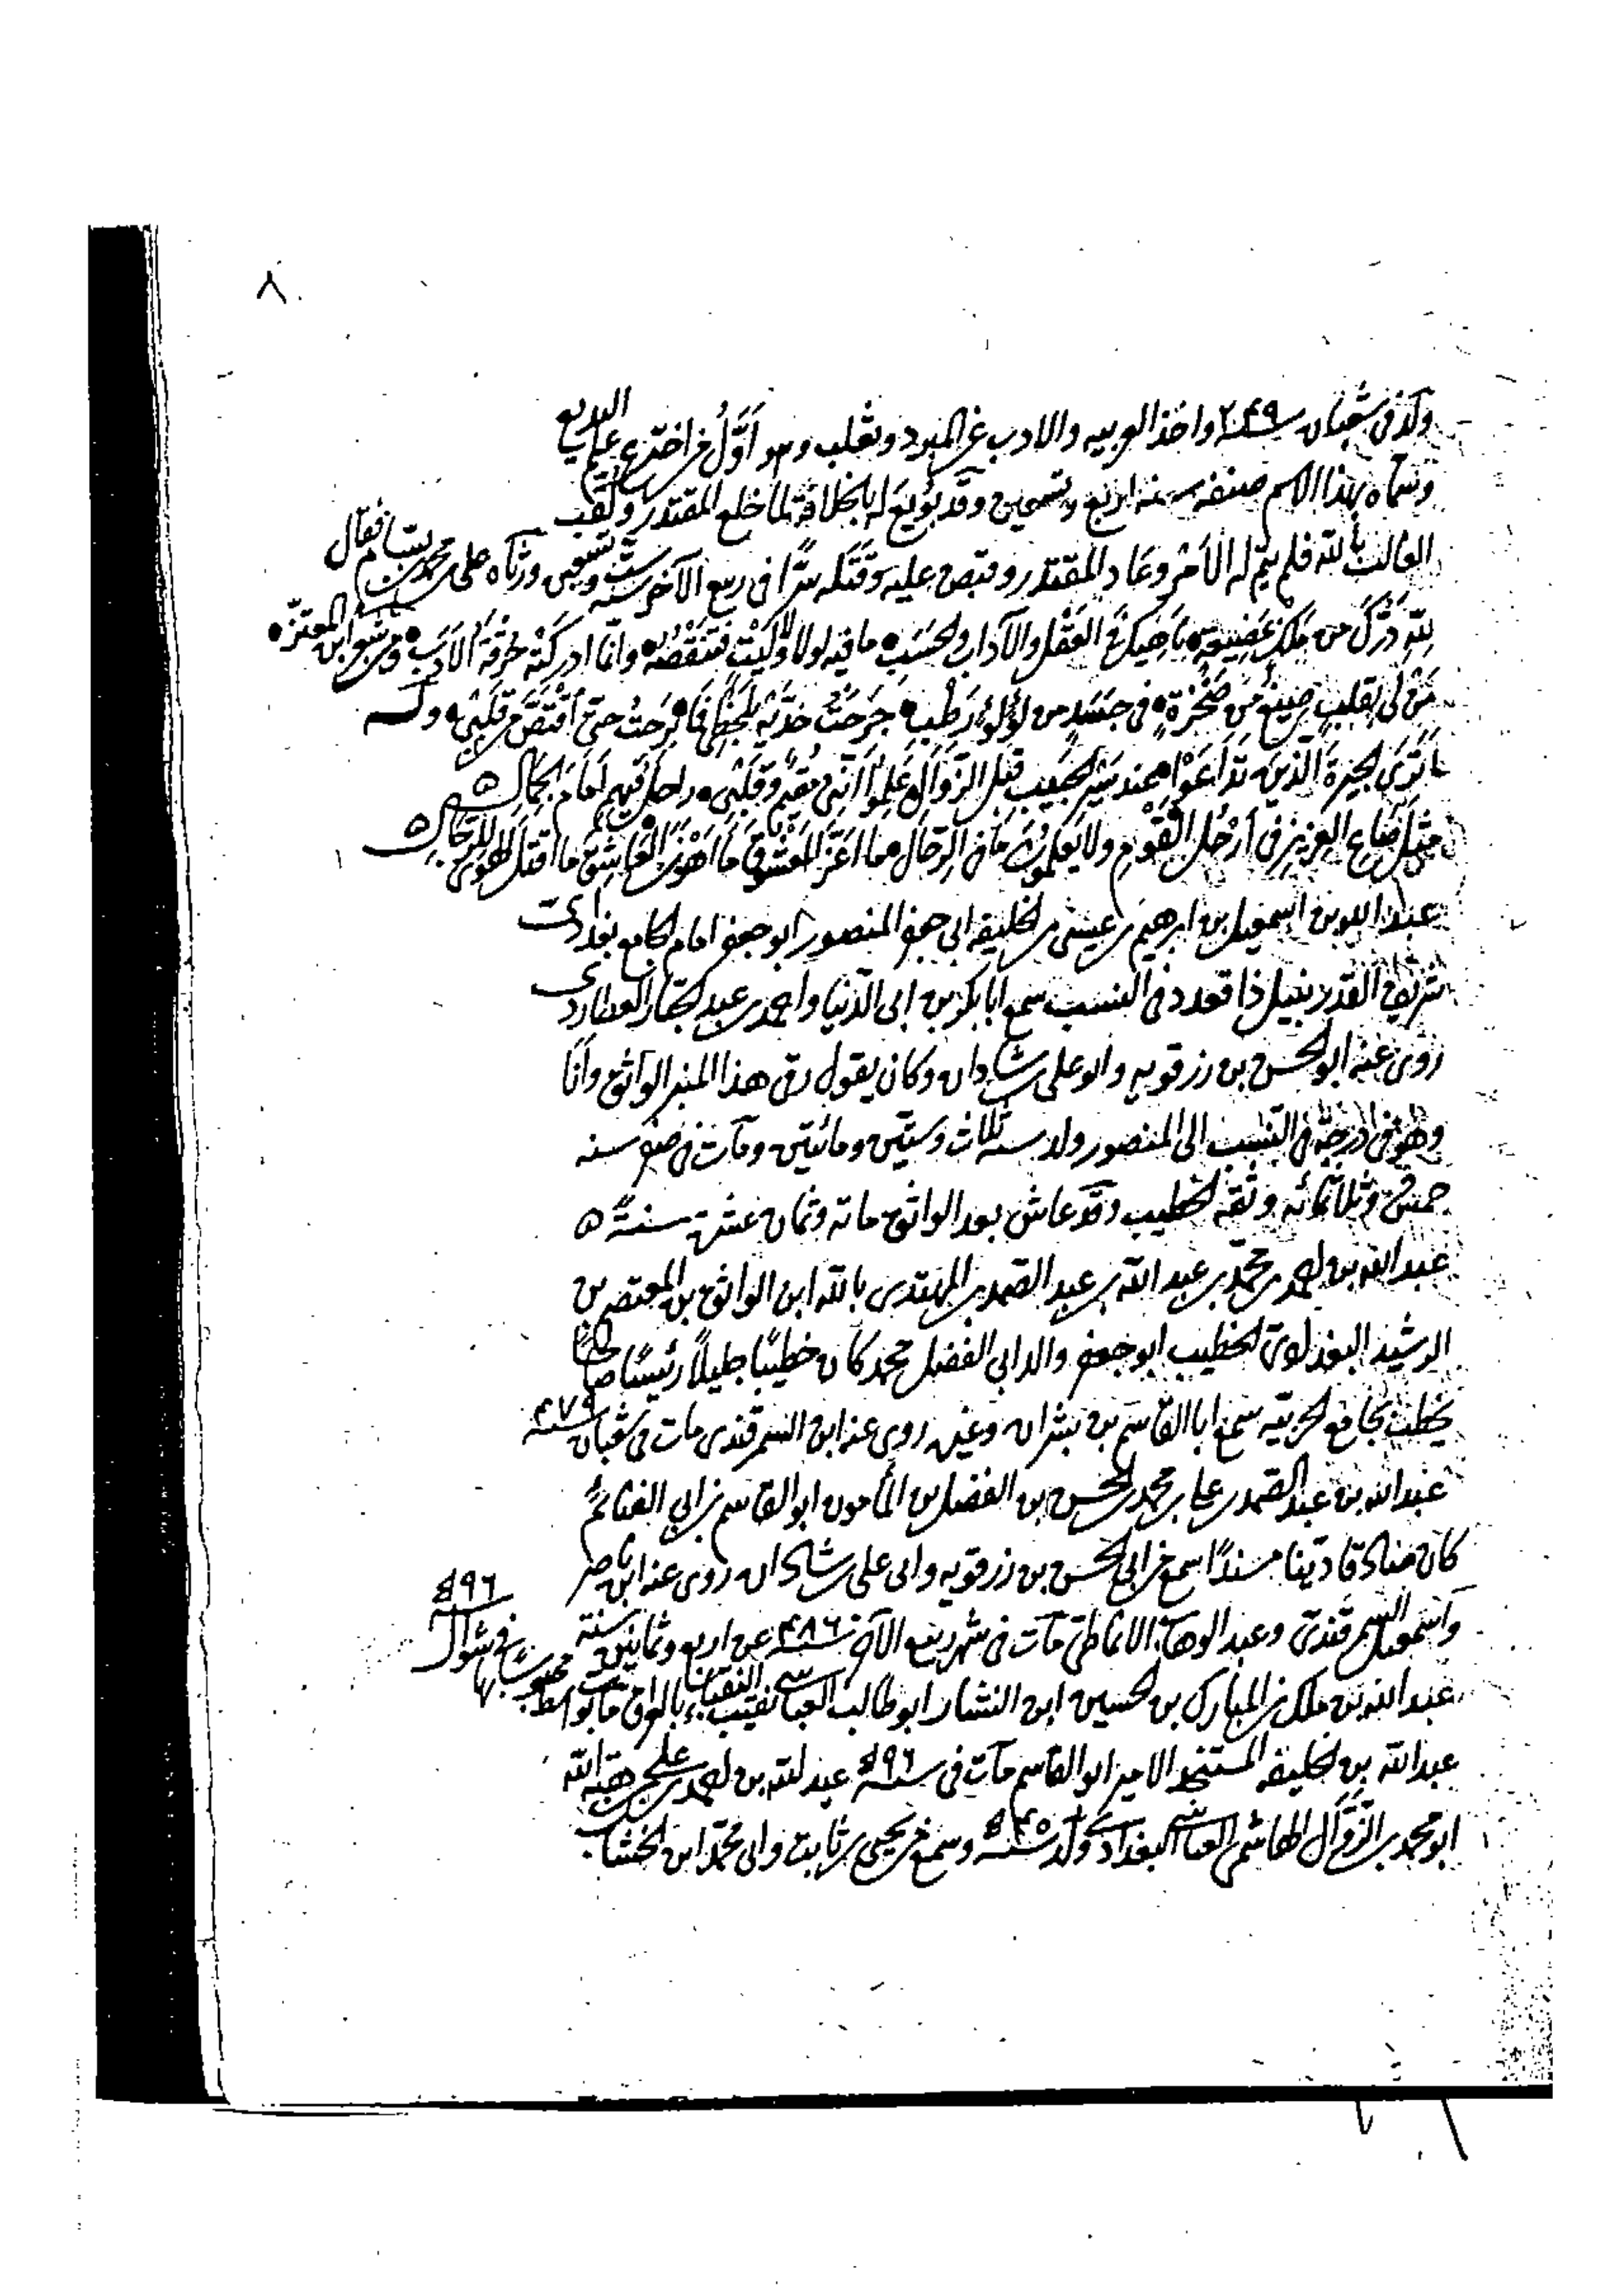 ٨
ولد في شعبان سنة ٢٤٩ واخذ العربيه والادب عن المبرد وثعلب وهو أوّلُ من اخترع علم البديع
وسمّاه بهذا الاسم صنفه سنه اربع وتسعين وقد بُويعَ له بالخلافة لما خلع المقتدر ولُقب
الغالب بالله فلم يتم له الأمْر وعَاد المقتدر وقبض عليه وقَتَله سرًّا في ربيع الآخر سنة ست وتسعين ورثاه علي بن محمد بن بسام فقال
لله دَرّكَ من مَلِكٍ بمَضيعةٍ ناهيكَ في العَقْل والآداب والحسَبِ ما فيه لولا ولا لَيْتٌ فتنقصُه وانّما ادركَتْه حُرفةُ الأدَبِ ومن شعر ابن المعتزّ
مَنْ لي بقلبٍ صيغَ من صَخْرَةٍ في جسَدٍ من لؤلؤٍ رَطْبِ جَرَحتُ خدّيْه بلَحْظي فمَا بَرحتُ حتّى أقتَصّ من قلبي وله
ما تَرى الجيرةَ الذينَ تَدَاعَوْا عند سَيْر الحبيب قَبْل الزّوال عَلِموا أنّني مُقيمٌ وقلبي راحلٌ فيهم أمامَ الجمال
مثلَ صَاع العزيز في أرْحُل القَوْم ولا يَعلمونَ ما في الرّحال ما اعَزّ المعْشُوقَ ما أهْوَنَ العَاشِقَ ما اقتَل الهوى للرّجال
عبد الله بن اسمعيل بن ابرهيم بن عيسى بن الخليفه ابي جعفر المنصور ابو جعفر امام الجامع ببغداد
شريف القدر نبيل ذا قعدد في النسب سمع ابا بكر بن ابي الدّنيا واحمد بن عبد الجبّار العطاردي
رَوى عنه ابو الحسن بن رزقويه وابو علي بن شاذان وكان يقول رقى هذا المنبر الواثق وأنَا
وهو في درجة في النسب الى المنصور ولد سنة ثلاث وستين ومائتين ومات في صفر سنه
خمسين وثلاثمائه وثقه الخطيب وقد عاش بعد الواثق مائه وثمان عشرة سنةً
عبد الله بن احمد بن محمّد بن عبد الله بن عبد الصّمد بن المهتدي بالله ابن الواثق بن المعتصم بن
الرشيد البغدادي الخطيب ابو جعفر والد ابي الفضل محمد كان خطيبًا جليلاً رئيسًا صالحًا
يخطب بجامع الحربيّه سمع ابا القاسم بن بشران وغيره روى عنه ابن السمرقندي مات في شعبان سنة ٤٧٩
عبد الله بن عبد الصّمد بن علي بن محمد بن الحسن بن الفضل بن المأمون ابو القاسم بن ابي الغنائم
كان صادقا ديّنا مسندًا سمع من ابي الحسن بن رزقويه وابي علي بن شاذان روى عنه ابن ناصر
واسمعيل السمرقندي وعبد الوهاب الانماطي مات في شهر ربيع الآخر سنة ٤٨٦ عن اربع وثمانين سنة
عبد الله بن ملك بن المبارك بن الحسين ابن النشار ابو طالب العباسي نقيب النقباء بالعراق مات بواسط في شوال ٥٩٦
عبد الله بن الخليفه المستنجد الامير ابو القاسم مات في سنة ٥٩٦ عبد الله بن احمد بن علي بن هبة الله
ابو محمد بن الزّوال الهاشمي العباسي البغدادي وُلد سنة وسمع من يحيى بن ثابت وابي محمّد ابن الخشّاب